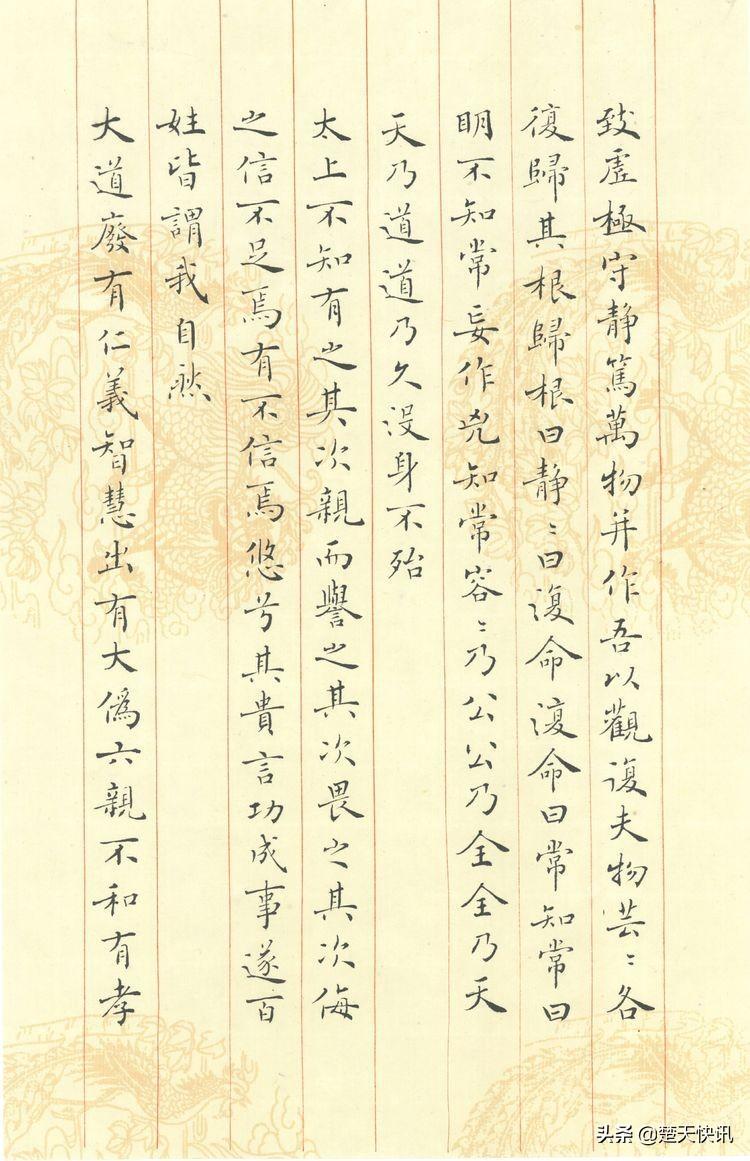 致虛極守靜篤萬物并作吾以觀復夫物芸〻各
復歸其根歸根曰靜〻曰復命復命曰常知常曰
明不知常妄作凶知常容〻乃公公乃全全乃天
天乃道道乃久没身不殆
太上不知有之其次親而譽之其次畏之其次侮
之信不足焉有不信焉悠兮其貴言功成事遂百
姓皆謂我自然
大道廢有仁義智慧出有大偽六親不和有孝
头条 @楚天快讯